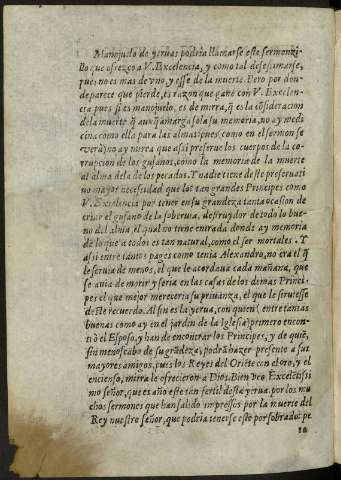 Manojuelo de yeruas podria llamarse este sermonzi-
llo que ofrezco a V. Excelencia, y como tal desestimarse,
pues no es mas de vno, y esse de la muerte. Pero por don-
de parece que pierde, es razon que gane con V. Excelen-
cia pues si es manojuelo, es de mirra, q̃ es la cõsideracion
de la muerte q̃ aunq̃ amarga sola su memoria, no ay medi-
cina como ella para las almas: pues (como en el sermon se
verà) no ay mirra que assi preserue los cuerpos de la co-
rrupcion de los gusanos, como la memoria de la muerte
al alma de la de los pecados. Y nadie tiene deste preseruati
uo mayor necessidad que los tan grandes Principes como
V. Excelencia por tener en su grandeza tanta ocasion de
criar el gusano de la soberuia, destruydor de todo lo bue-
no del alma el qual no tiene entrada donde ay memoria
de lo que a todos es tan natural, como el ser mortales. Y
assi entre tantos pages como tenia Alexandro, no era el q̃
le seruia de menos, el que le acordaua cada mañana, que
se auia de morir y seria en las casas de los demas Princi-
pes el que mejor mereceria su priuança, el que le siruiesse
deste recuerdo. Al fin es la yerua, con quien (entre tantas
buenas como ay en el jardin de la Iglesia) primero encon-
trò el Esposo, y han de encontrar los Principes, y de quiẽ,
sin menoscabo de su grãdeza, podrã hazer presente a sus
mayores amigos, pues los Reyes del Oriẽte con el oro, y el
encienso, mirra le ofrecieron a Dios. Bien veo Excelẽtissi
mo señor, que es año este tan fertil desta yerua, por los mu
chos sermones que han salido impressos por la muerte del
Rey nuestro señor, que podria tenerse este por sobrado: pe
ro